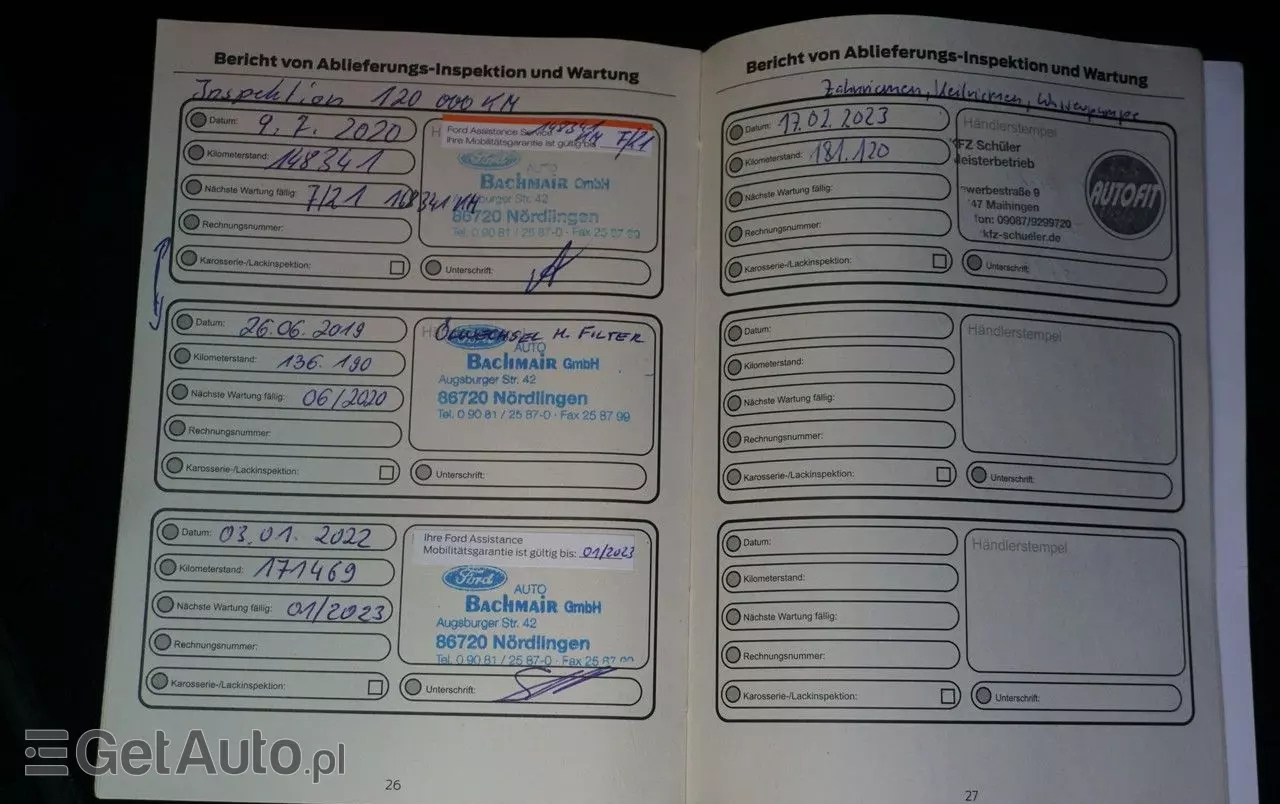 Bericht von Ablieferungs-Inspektion und Wartung
Inspektion 120 000 KM
Datum: 9. 7. 2020
Kilometerstand: 148341
Nächste Wartung fällig: 7/21 168341 KM
Rechnungsnummer:
Karosserie-/Lackinspektion:
Ford Assistance Service 148341 KM 7/21
Ihre Mobilitätsgarantie ist gültig bis
Ford
AUTO
BACHMAIR GmbH
Augsburger Str. 42
86720 Nördlingen
Tel. 0 90 81 / 25 87-0 · Fax 25 87 99
Unterschrift:
Datum: 26.06.2019
Kilometerstand: 136.190
Nächste Wartung fällig: 06/2020
Rechnungsnummer:
Karosserie-/Lackinspektion:
ÖLWECHSEL M. FILTER
AUTO
BACHMAIR GmbH
Augsburger Str. 42
86720 Nördlingen
Tel. 0 90 81 / 25 87-0 · Fax 25 87 99
Unterschrift:
Datum: 03.01. 2022
Kilometerstand: 171469
Nächste Wartung fällig: 01/2023
Rechnungsnummer:
Karosserie-/Lackinspektion:
Ihre Ford Assistance
Mobilitätsgarantie ist gültig bis: 01/2023
Ford
AUTO
BACHMAIR GmbH
Augsburger Str. 42
86720 Nördlingen
Tel. 0 90 81 / 25 87-0 · Fax 25 87 99
Unterschrift:
26
Bericht von Ablieferungs-Inspektion und Wartung
Zahnriemen, Keilriemen, Wasserpumpe
Datum: 17.02.2023
Kilometerstand: 181.120
Nächste Wartung fällig:
Rechnungsnummer:
Karosserie-/Lackinspektion:
Händlerstempel
KFZ Schüler
Meisterbetrieb
werbestraße 9
47 Maihingen
fon: 09087/9299720
kfz-schueler.de
AUTOFIT
Unterschrift:
Datum:
Kilometerstand:
Nächste Wartung fällig:
Rechnungsnummer:
Karosserie-/Lackinspektion:
Händlerstempel
Unterschrift:
Datum:
Kilometerstand:
Nächste Wartung fällig:
Rechnungsnummer:
Karosserie-/Lackinspektion:
Händlerstempel
Unterschrift:
27
GetAuto.pl